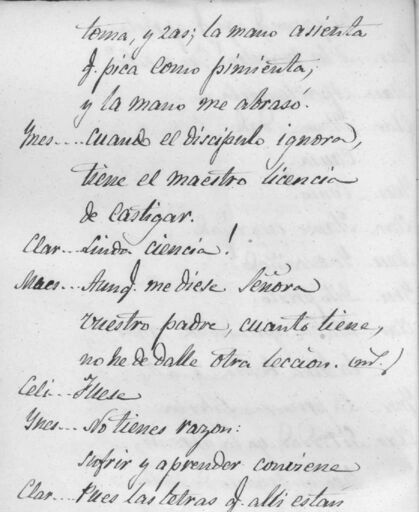 toma, y zas; la mano asienta
q. pica como pimienta,
y la mano me abrasó.
Ynes... cuando el discipulo ignora,
tiene el maestro licencia
de castigar.
Clar... Linda ciencia!
Maes... Aunq. me diese Señora
vuestro padre, cuanto tiene,
no he de dalle otra leccion.
Celi... Fuese
Ynes... No tienes razon:
sufrir y aprender conviene
Clar... Pues las otras q. alli estan